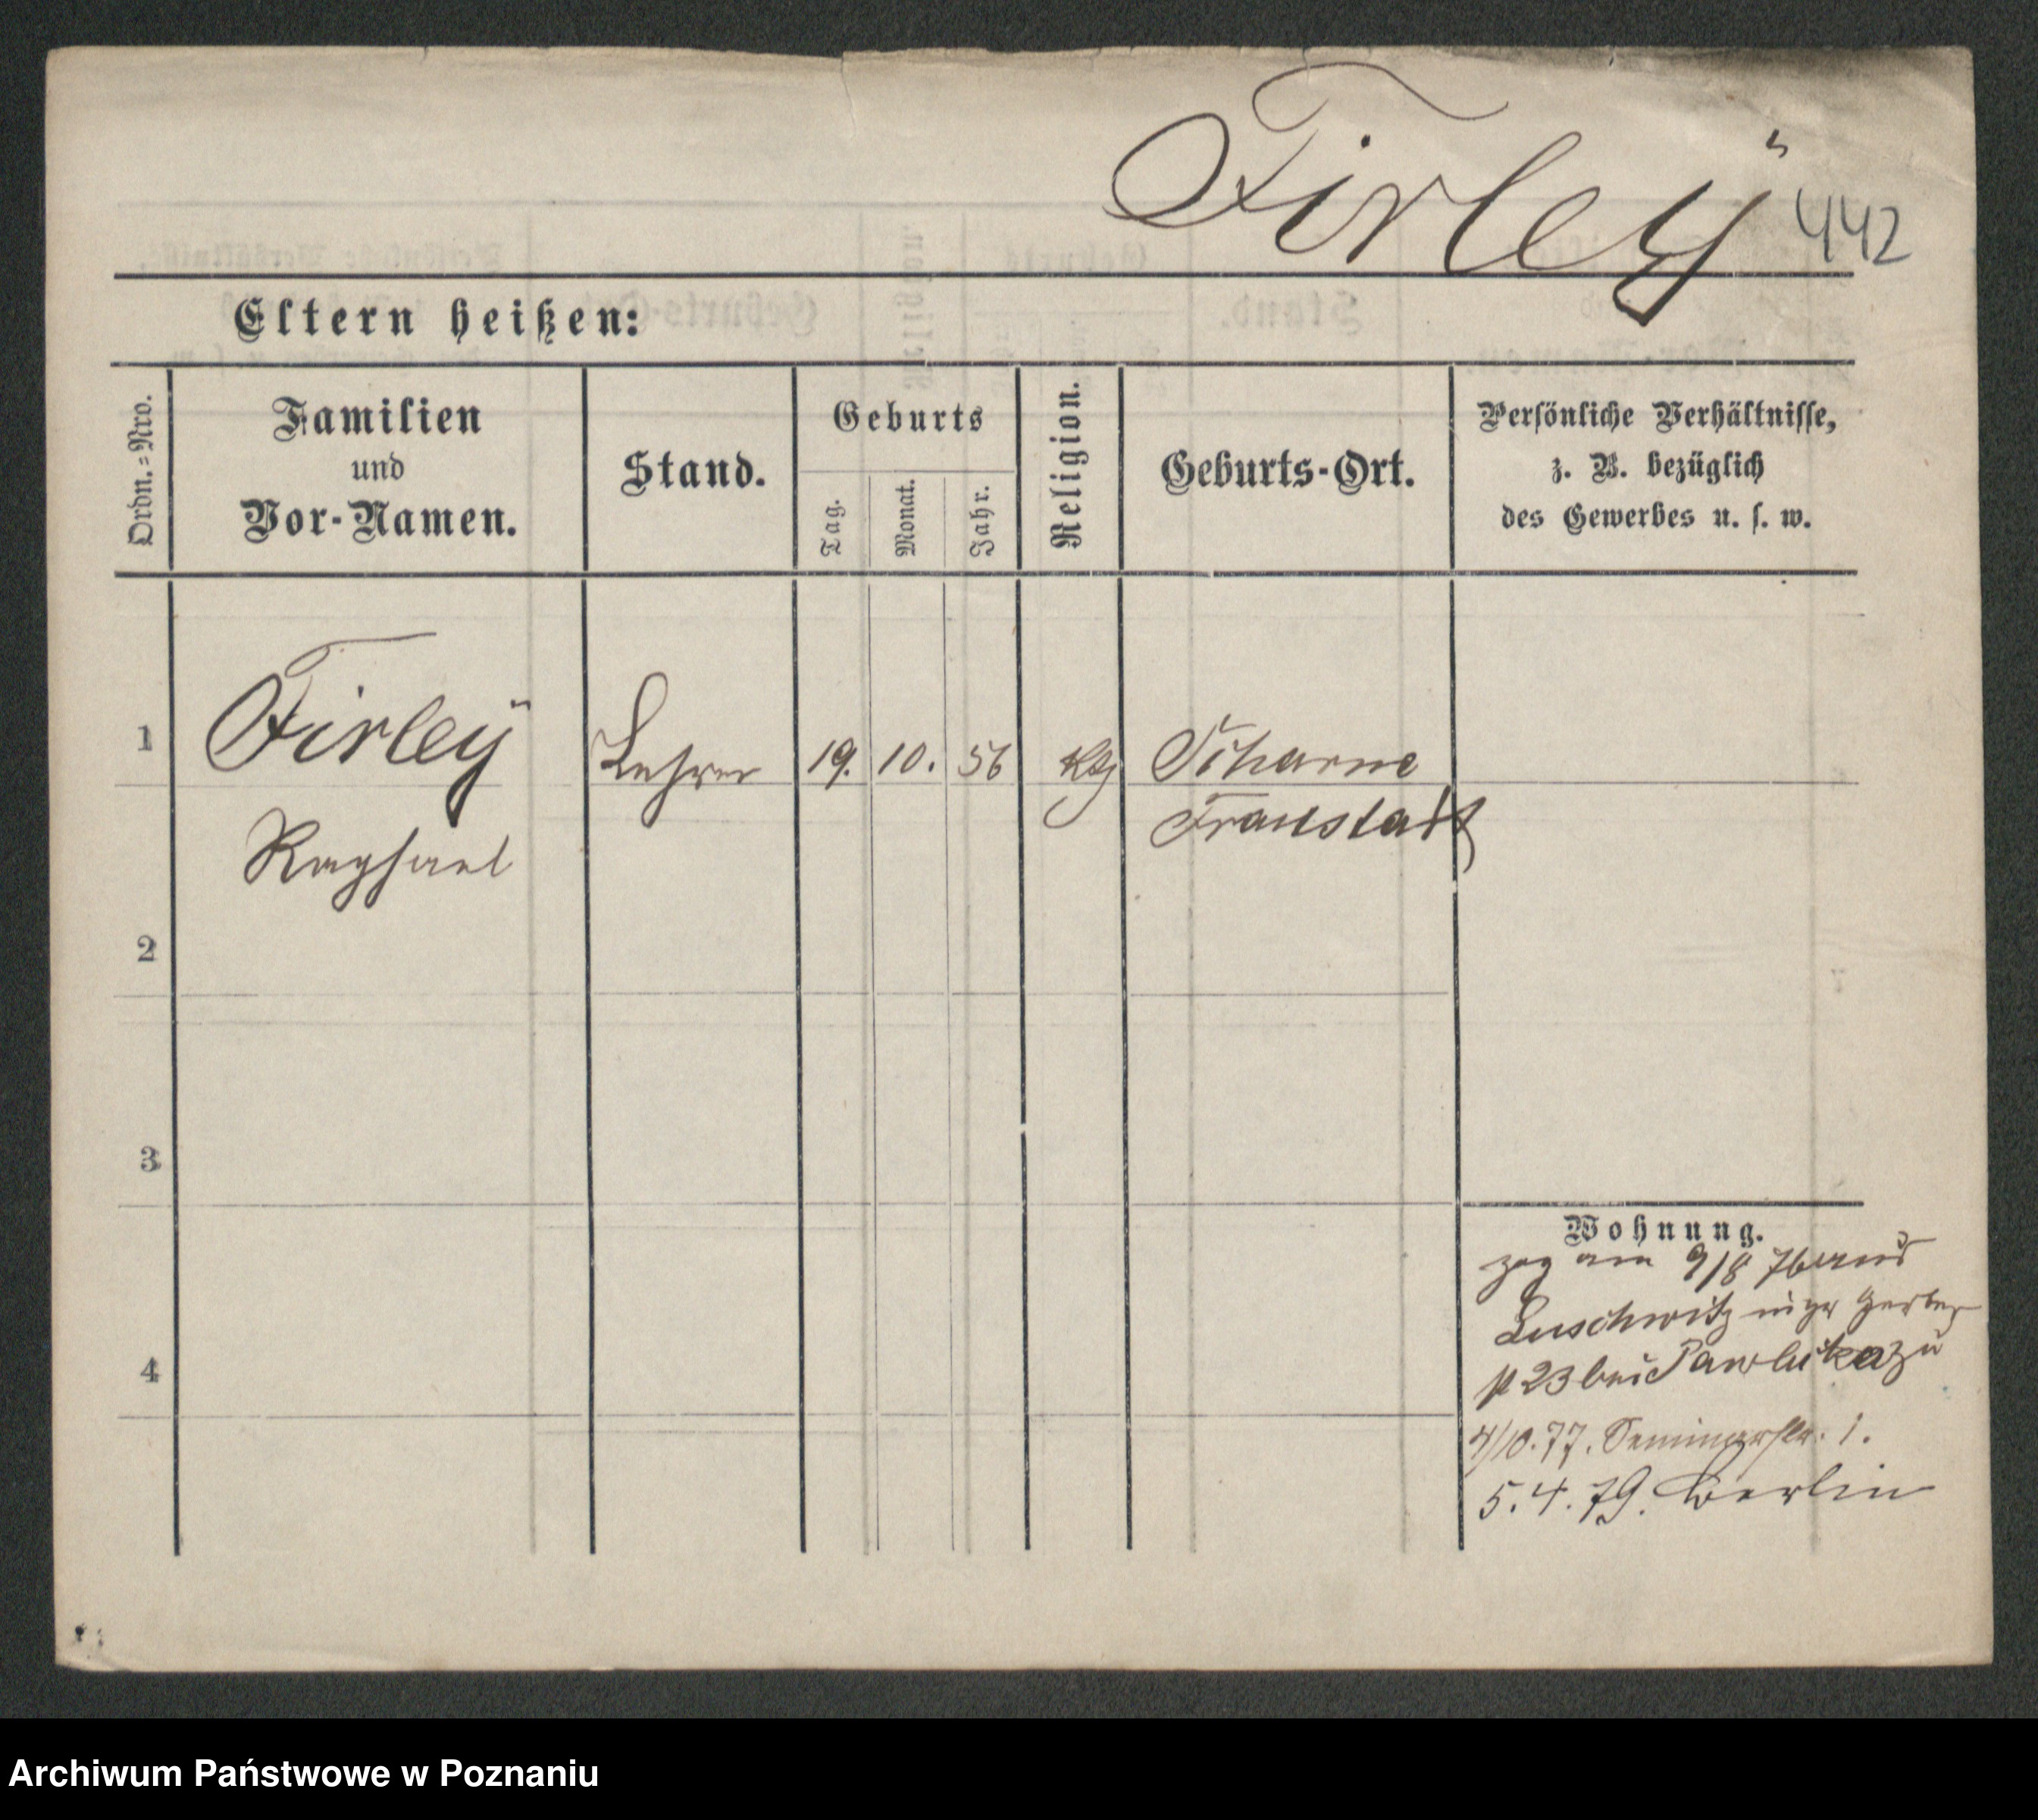 Firleÿ
442
Eltern heißen:
Ordn.=Nro.
Familien
und
Vor-Namen.
Stand.
Geburts
Tag.
Monat.
Jahr.
Religion.
Geburts-Ort.
Persönliche Verhältnisse,
z. B. bezüglich
des Gewerbes u. s. w.
1
Firleÿ
Lehrer
19.
10.
56
Scharne
Fraustadt
Raphael
2
3
4
Wohnung.
zog am 9/8 76 aus
Luschwitz Gerber
23 bei Pawlicka zu
4/10.77. Seminarstr. 1.
5.4.79. Berlin
Archiwum Państwowe w Poznaniu